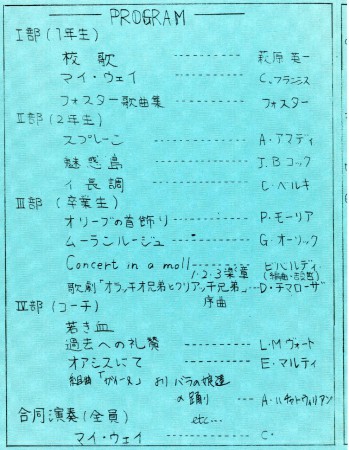 PROGRAM
I部(1年生)
校歌 ---------- 萩原英一
マイ・ウェイ ---------- C.フランシス
フォスター歌曲集 ---------- フォスター
II部(2年生)
スプレーン ---------- A・アマディ
魅惑島 ---------- J.B コック
イ長調 ---------- C・ベルキ
III部(卒業生)
オリーブの首飾り ---------- P.モーリア
ムーランルージュ ---------- G・オーリック
Concert in a moll ---------- ビバルディ
1・2・3楽章
歌劇「オラッチオ兄弟とクリアッチ兄弟」 --- D・チマローザ
序曲
IV部(コーチ)
若き血
過去への礼賛 ---------- L・M.ヴォート
オアシスにて ---------- E・マルティ
組曲「ガイーヌ」より バラの娘達
の踊り ---------- A・ハチャトゥリアン
合同演奏(全員) etc...
マイ・ウェイ ---------- C・